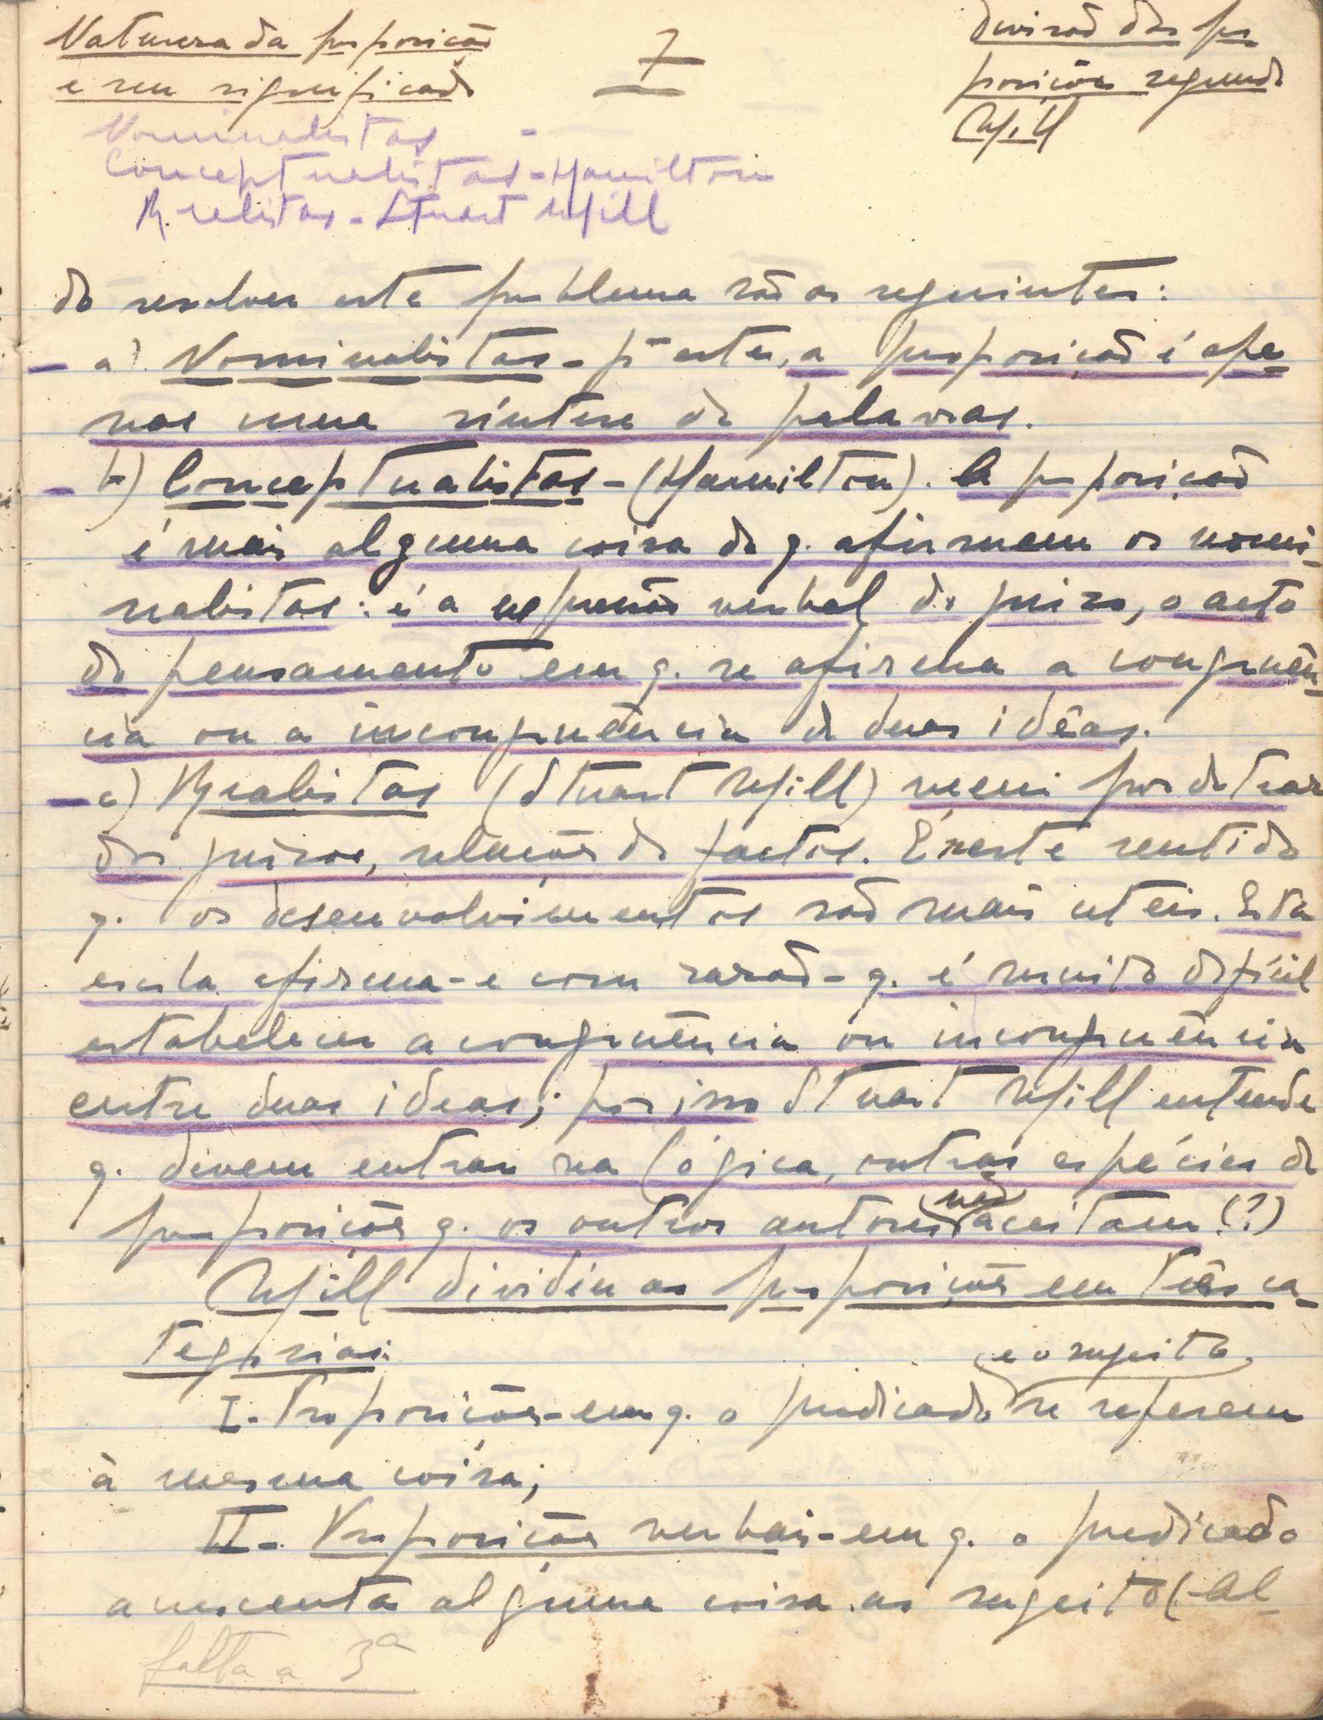 Natureza da proposição
e seu significado
7
Divisão das pro
posições segundo
Mill
Nominalistas -
Conceptualistas - Hamilton
Realistas - Stuart Mill
de resolver este problema são os seguintes:
- a) Nominalistas - pª estes, a proposição é ape
nas uma síntese de palavras.
- b) Conceptualistas - (Hamilton). A proposição
é mais alguma coisa do q. afirmam os nomi-
nalistas: é a expressão verbal do juizo, o acto
do pensamento em q. se afirma a congruên-
cia ou a incongruência de duas idéas.
- c) Realistas (Stuart Mill) veem por detraz
dos juizos, relações de factos. É neste sentido
q. os desenvolvimentos são mais uteis. Esta
escola afirma - e com razão - q. é muito difícil
estabelecer a congruência ou incongruência
entre duas ideas; por isso Stuart Mill entende
q. devem entrar na lógica, outras espécies de
proposições q. os outros autores não aceitam (?)
Mill dividiu as proposições em três ca-
tegorias:
I - Proposições - em q. o predicado e o sugeito se referem
à mesma coisa;
II - Proposições verbais - em q. o predicado
acrescenta alguma coisa ao sugeito (-al-
falta a 3ª